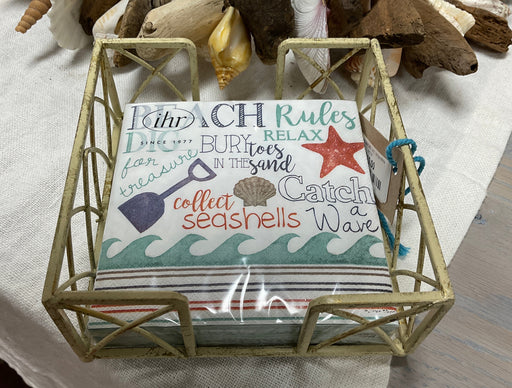 BEACH Rules
ihr
SINCE 1977
DIG BURY toes RELAX
for treasure IN THE sand
collect seashells
Catch a Wave